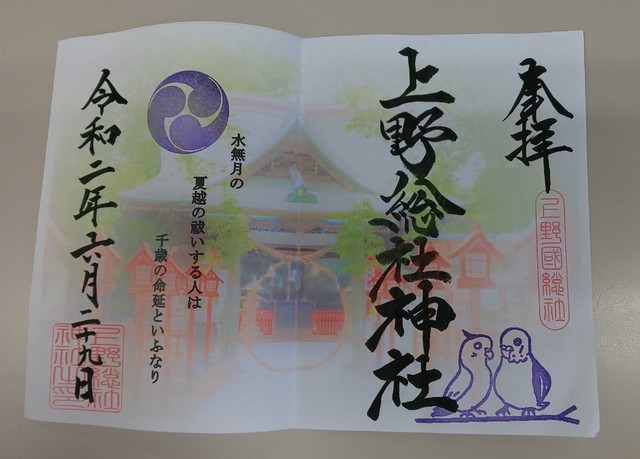 奉拝
上野國総社
上野総社神社
水無月の
夏越の祓いする人は
千歳の命延といふなり
令和二年六月二十九日
上野総社
神社之印